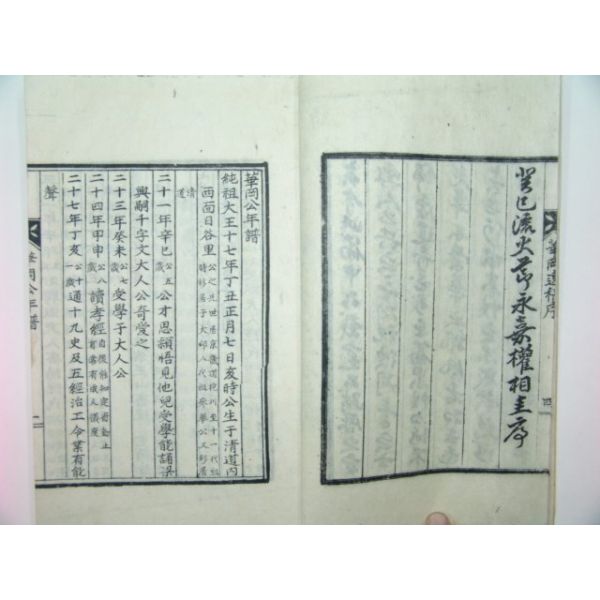 癸巳流火節永嘉權相圭序
華岡遺稿序
四
華岡公年譜
純祖大王十七年丁丑正月七日亥時公生于清道內
西面目谷里
清道
二十一年辛巳公五歲公才思穎悟見他兒受學能誦梁
興嗣千字文大人公奇愛之
二十三年癸未公七歲受學于大人公
二十四年甲申公八歲讀孝經
二十七年丁亥公十一歲通十九史及五經治工令業有能
聲
華岡公年譜